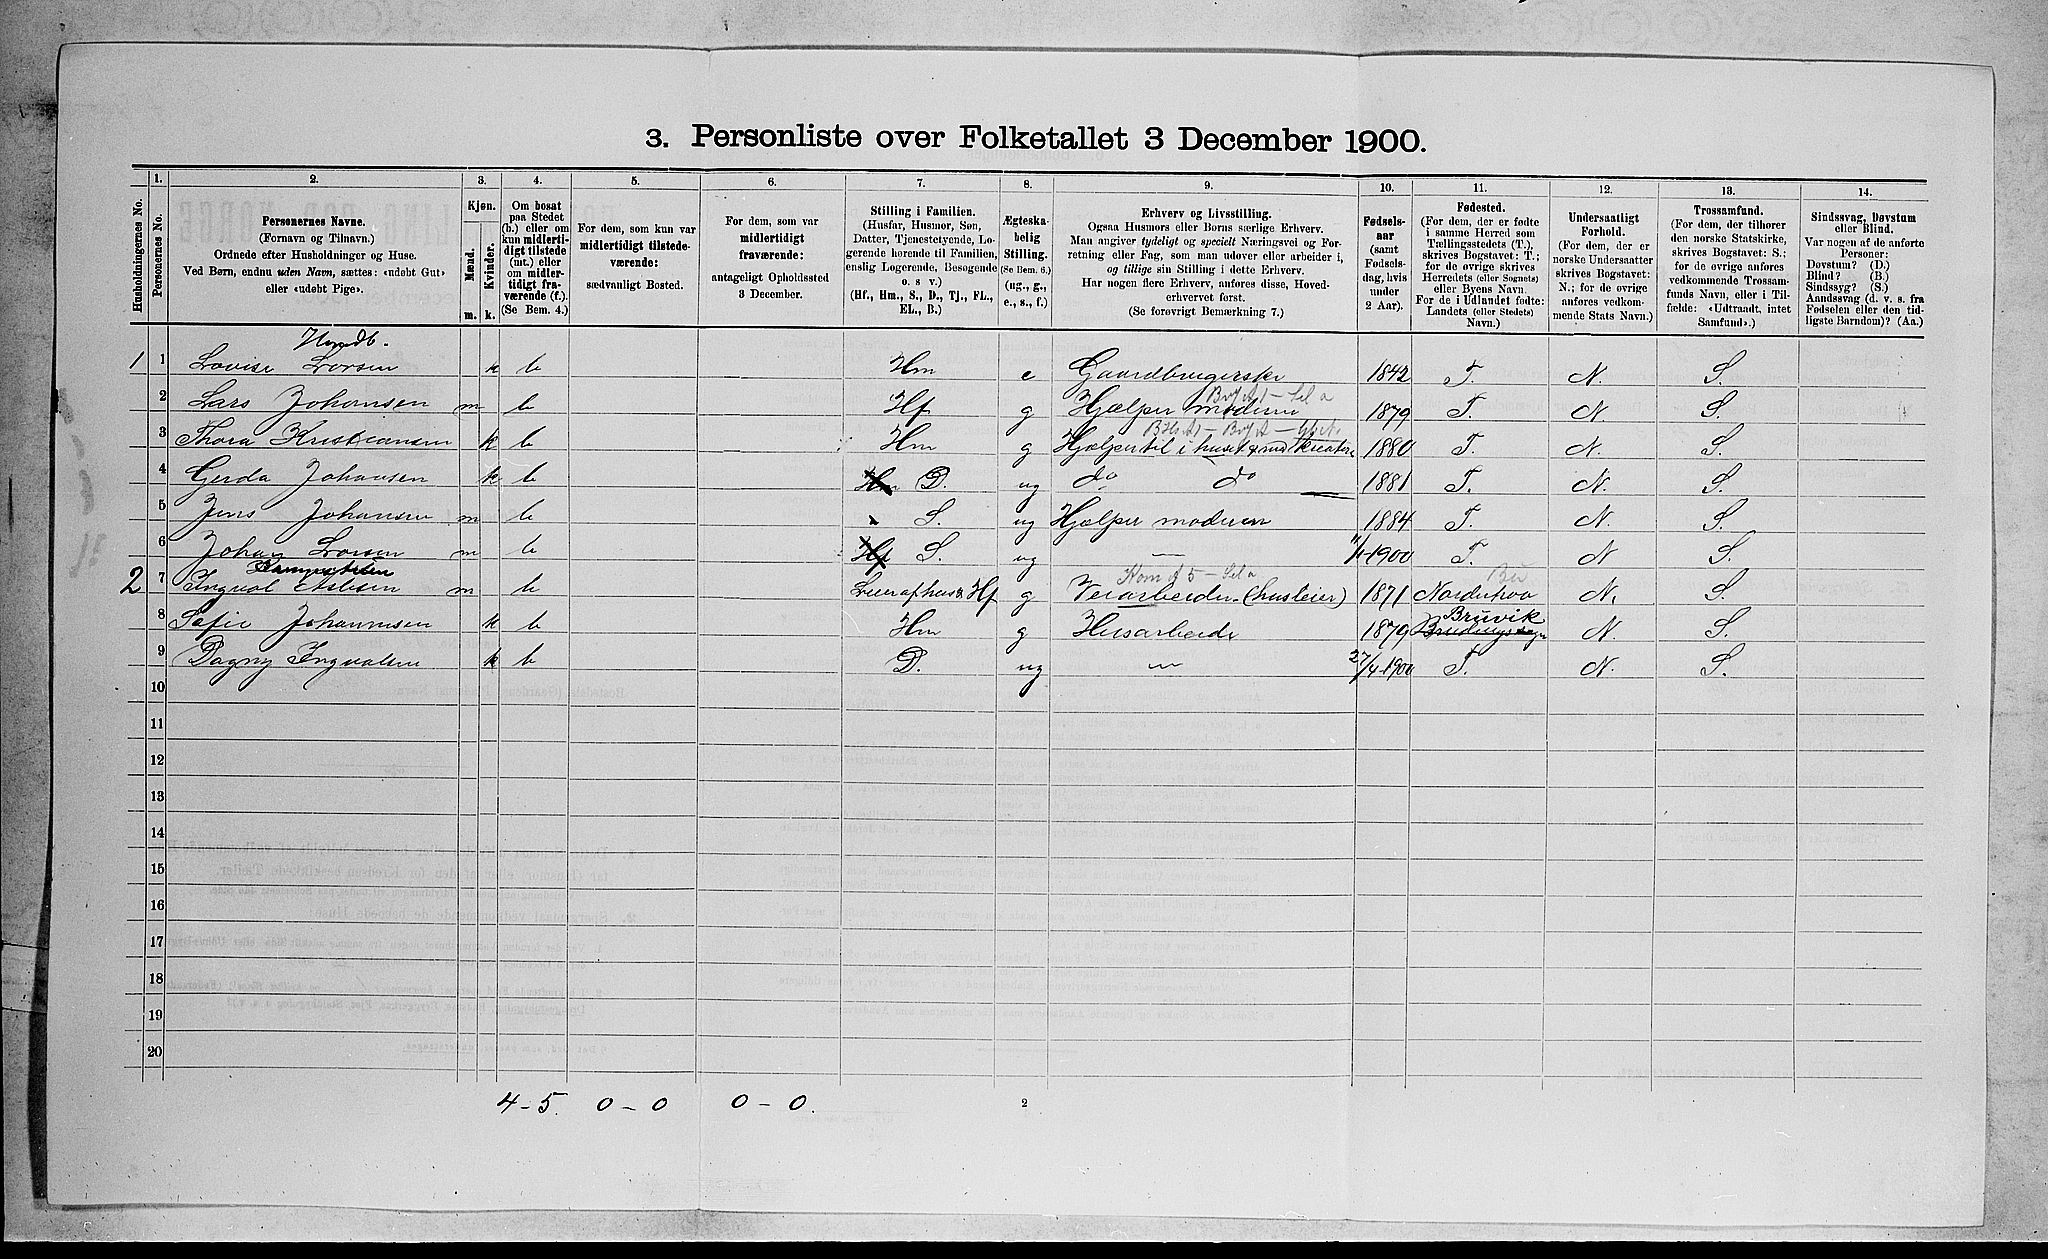 3. Personliste over Folketallet 3 December 1900.
Husholdningernes No.
1.
Personernes No.
2.
Personernes Navne.
(Fornavn og Tilnavn.)
Ordnede efter Husholdninger og Huse.
Ved Børn, endnu uden Navn, sættes: «udøbt Gut»
eller «udøbt Pige».
3.
Kjøn.
Mænd.
Kvinder.
m.
k.
4.
Om bosat
paa Stedet
(b.) eller om
kun midlerti-
digt tilstede
(mt.) eller
om midler-
tidigt fra-
værende (f.).
(Se Bem. 4.)
5.
For dem, som kun var
midlertidigt tilstede-
værende:
sædvanligt Bosted.
6.
For dem, som var
midlertidigt
fraværende:
antageligt Opholdssted
3 December.
7.
Stilling i Familien.
(Husfar, Husmor, Søn,
Datter, Tjenestetyende, Lo-
gerende hørende til Familien,
enslig Logerende, Besøgende
o. s. v.)
(Hf., Hm., S., D., Tj., FL.,
EL., B.)
8.
Ægteska-
belig
Stilling.
(Se Bem. 6.)
(ug., g.,
e., s., f.)
9.
Erhverv og Livsstilling.
Ogsaa Husmors eller Børns særlige Erhverv.
Man angiver tydeligt og specielt Næringsvei og For-
retning eller Fag, som man udover eller arbeider i,
og tillige sin Stilling i dette Erhverv.
Har nogen flere Erhverv, anføres disse, Hoved-
erhvervet først.
(Se forøvrigt Bemærkning 7.)
10.
Fødsels-
aar
(samt
Fødsels-
dag, hvis
under
2 Aar).
11.
Fødested.
(For dem, der er fødte
i samme Herred som
Tællingsstedets (T.),
skrives Bogstavet: T.;
for de øvrige skrives
Herredets (eller Sognets)
eller Byens Navn.
For de i Udlandet fødte:
Landets (eller Stedets)
Navn.)
12.
Undersaatligt
Forhold.
(For dem, der er
norske Undersaatter
skrives Bogstavet:
N.; for de øvrige
anføres vedkom-
mende Stats Navn.)
13.
Trossamfund.
(For dem, der tilhører
den norske Statskirke,
skrives Bogstavet: S.;
for de øvrige anføres
vedkommende Trossam-
funds Navn, eller i Til-
fælde: «Udtraadt, intet
Samfund».)
14.
Sindssvag, Døvstum
eller Blind.
Var nogen af de anførte
Personer:
Døvstum? (D.)
Blind? (B.)
Sindssyg? (S.)
Aandssvag (d. v. s. fra
Fødselen eller den tid-
ligste Barndom)? (Aa.)
1 1 Lovise Larsen k b Hm e Gaardbrugerske 1842 T. N. S.
2 Lars Johansen m b Hf g Hjælper moderen 1879 T. N. S.
3 Thora Kristiansen k b Hm g Hjælper til i huset & med kreature 1880 T. N. S.
4 Gerda Johansen k b Hm D. ug do do 1881 T. N. S.
5 Jens Johansen m b S. ug Hjælper moderen 1884 T. N. S.
6 Johan Larsen m b Hf S. ug — 1900 T. N S.
2 7 Ingval Aslesen m b Hf g Veiarbeider (husleier) 1871 Norderhov N. S.
Bruvik
8 Sofie Johannesen k b Hm g Husarbeide 1879 N. S.
9 Dagny Ingvalsen k b D. ug — 27/4-1900 T. N. S.
10
11
12
13
14
15
16
17
18
19
20
4 - 5. 0 - 0 0 - 0.
2